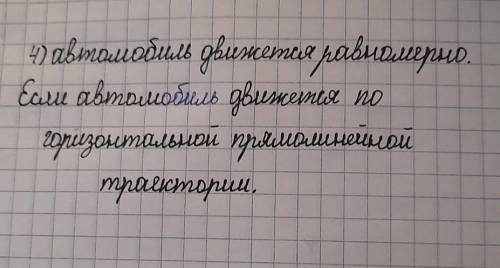 4) автомобиль движется равномерно.
Если автомобиль движется по
горизонтальной прямолинейной
траектории.